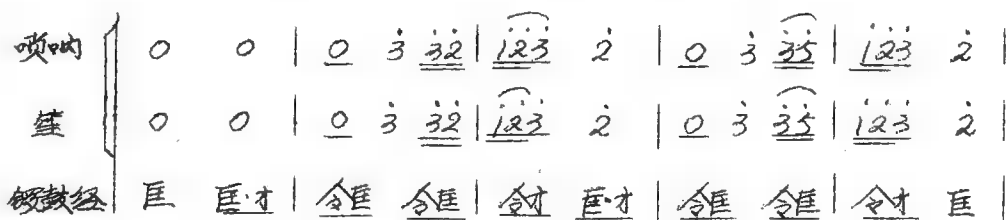 唢呐 0 0 | 0 3̇ 3̇2̇ | 1̇2̇3̇ 2̇ | 0 3̇ 3̇5̇ | 1̇2̇3̇ 2̇ |
笙 0 0 | 0 3̇ 3̇2̇ | 1̇2̇3̇ 2̇ | 0 3̇ 3̇5̇ | 1̇2̇3̇ 2̇ |
锣鼓经 匡 匡·才 | 令匡 令匡 | 令才 匡·才 | 令匡 令匡 | 令才 匡 |